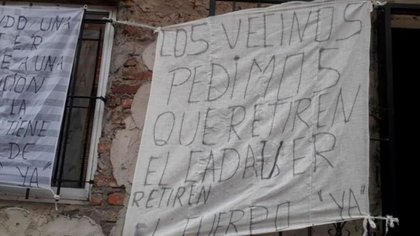 NDO UNA
ER
E A UNA
CION
LA
TIENE
DE
YA"
LOS VECINOS
PEDIMOS
QUE RETIREN
EL CADAVER
RETIREN
EL CUERPO "YA"